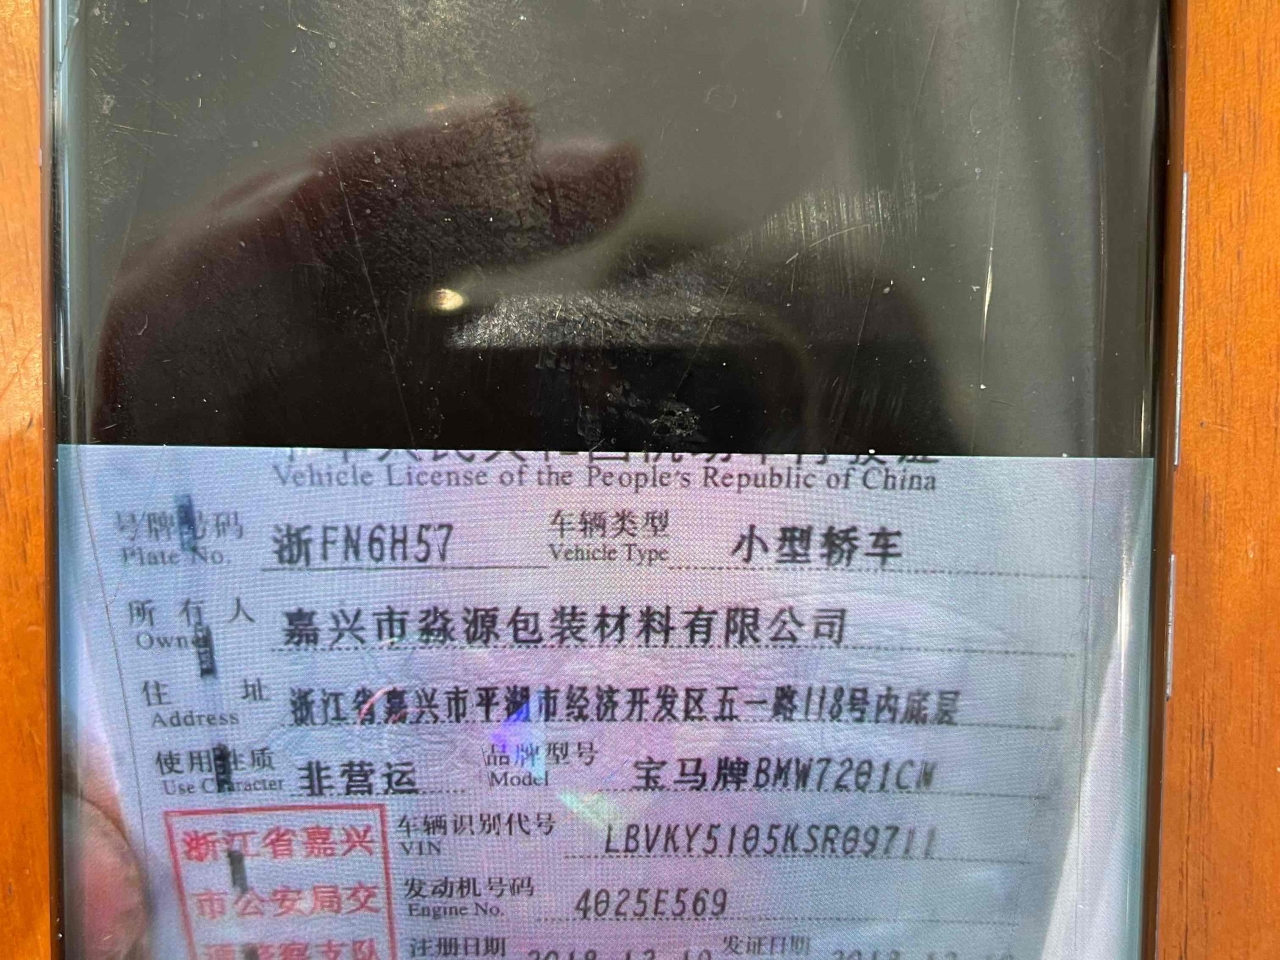 Vehicle License of the People's Republic of China
号牌号码 浙FN6H57 车辆类型 小型轿车
Plate No. Vehicle Type
所有人 嘉兴市淼源包装材料有限公司
Owner
住址 浙江省嘉兴市平湖市经济开发区五一路118号内底层
Address
使用性质 非营运 品牌型号 宝马牌BMW7201CM
Use Character Model
浙江省嘉兴 车辆识别代号 LBVKY5105KSR09711
VIN
市公安局交 发动机号码 4025E569
Engine No.
通警察支队 注册日期 发证日期